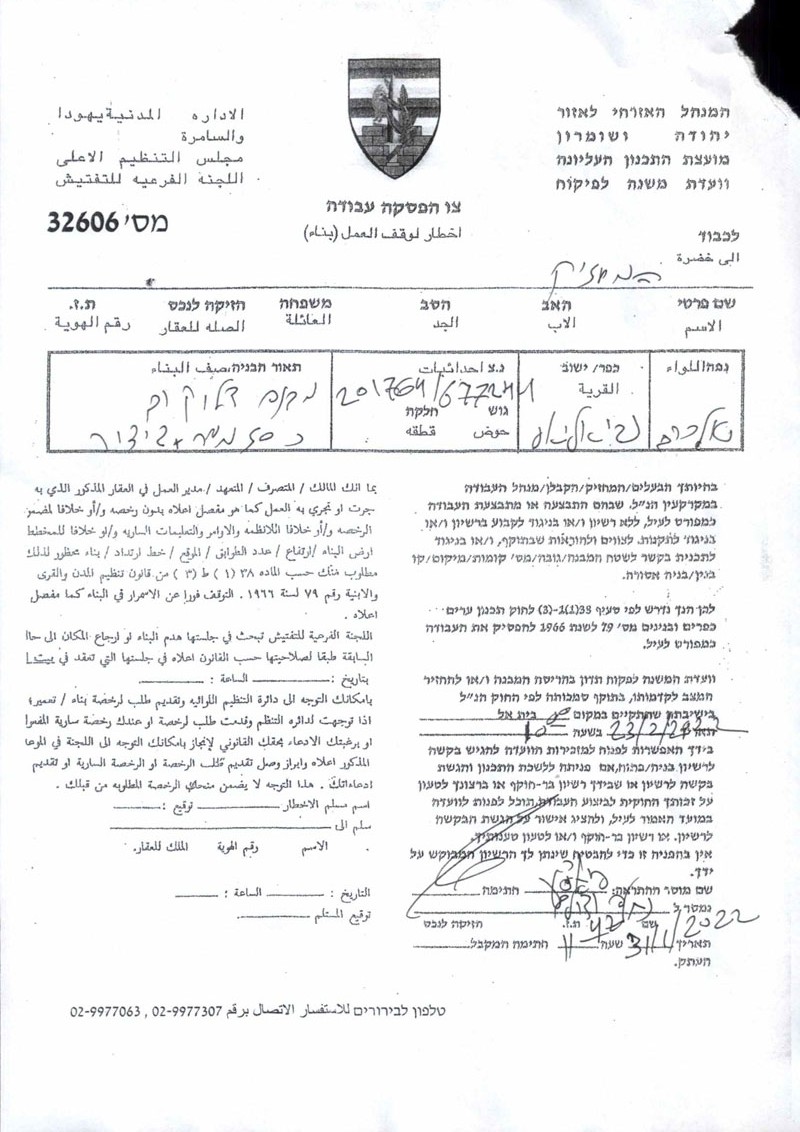 המנהל האזרחי לאזור
יהודה ושומרון
מועצת התכנון העליונה
וועדת משנה לפיקוח
الاداره المدنية يهودا
والسامرة
مجلس التنظيم الاعلى
اللجنة الفرعيه للتفتيش
צו הפסקה עבודה
اخطار لوقف العمل (بناء)
מס' 32606
לכבוד
الى خضرة
המחזיק
שם פרטי האב הסב משפחה חזיקה לנכס ת.ז.
الاسم الاب الجد العائلة الصله للعقار رقم الهوية
נפה/اللواء כפר/ ישוב נ.צ احداثيات תאור הבניה/صيف البناء
القرية 201764/677244
גוש חלקה
حوض قطقه
בהיותך הבעלים/המחזיק/הקבלן/מנהל העבודה
במקרקעין הנ"ל. שבהם התבצעה או מתבצעת העבודה
כמפורט לעיל, ללא רשיון ו/או בניגוד לקבוע ברשיון ו/או
בניגוד לתקנות. לצווים ולהוראות שבתוקף, ו/או בניגוד
לתכנית בקשר לשטח המבנה/גובה/מס' קומות/מיקום/קו
בנין/בניה אסורה.
לכן הנך נדרש לפי סעיף 38(1)-(3) לחוק תכנון ערים
כפרים ובנינים מס' 79 לשנת 1966 להפסיק את העבודה
כמפורט לעיל.
וועדת המשנה לפקוח תדון בהריסת המבנה ו/או להחזיר
המצב לקדמותו, בתוקף סמכותה לפי החוק הנ"ל
בישיבתה שתתקיים במקום בית אל
תאריך 23/2/2022 בשעה 10
בידך האפשרות לפנות למזכירות הוועדה להגיש בקשה
לרשיון בניה/פתוח,אם פניתה ללשכת התכנון והגשת
בקשה לרשיון או שבידך רשיון בר-תוקף או ברצונך לטעון
על זכותך החוקית לביצוע העבודה תוכל לפנות לוועדה
במועד האמור לעיל, ולהציג אישור על הגשת הבקשה
לרשיון. או רשיון בר-תוקף ו/או לטעון טענותיך.
אין בהפניה זו כדי להבטיח שינתן לך הרשיון המבוקש על
ידך.
שם מוסר ההתראה: חתימה
נמסר ל
שם ת.ז. חזיקה לנכס
תאריך 31/1/2022 שעה 11 חתימה המקבל
העתק.
بما انك المالك / المتصرف / المتعهد / مدير العمل في العقار المذكور الذي به
جرت او تجري به العمل كما هو مفصل اعلاه بدون رخصه و/أو خلافا لمضمو
الرخصه و/أو خلافا للانظمه والاوامر والتعليمات الساريه و/او خلافا للمخطط
ارض البناء /ارتفاع / عدد الطوابق / الموقع / خط ارتداد / بناء محظور لذلك
مطلوب منك حسب الماده ٣٨ (١) ط (٣) من قانون تنظيم المدن والقرى
والابنية رقم ٧٩ لسنة ١٩٦٦ . التوقف فورا عن الاسمرار في البناء كما مفصل
اعلاه .
اللجنة الفرعية للتفتيش تبحث في جلستها هدم البناء او ارجاع المكان الى حاا
السابقة طبقا لصلاحيتها حسب القانون اعلاه في جلستها التي تعقد في
بتاريخ : الساعة :
بامكانك التوجه الى دائرة التنظيم اللوائيه وتقديم طلب لرخصة بناء / تعمير؛
اذا توجهت لدائره التنظم وقدمت طلب لرخصة او عندك رخصة سارية المفعوا
او برغبتك الادعاء بحقك القانوني لإنجاز بامكانك التوجه الى اللجنة في الموعا
المذكور اعلاه وابراز وصل تقديم طلب الرخصة او الرخصة السارية او تقديم
ادعاءاتك . هذا التوجه لا يضمن منحكي الرخصة المطلوبه من قبلك .
اسم مسلم الاخطار : توقيع :
سلم الى
الاسم رقم الهوية الملك للعقار.
التاريخ : الساعة :
توقيع المستلم
טלפון לבירורים للاستفسار الاتصال برقم 02-9977307 , 02-9977063